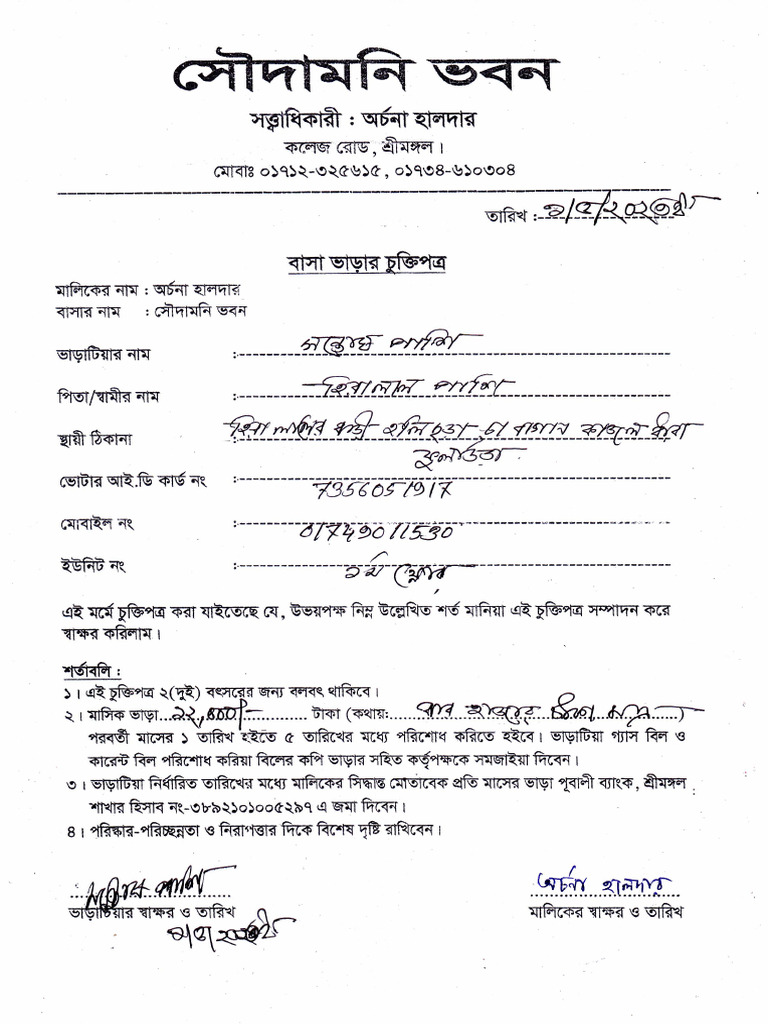 সৌদামনি ভবন
সত্ত্বাধিকারী : অর্চনা হালদার
কলেজ রোড, শ্রীমঙ্গল।
মোবাঃ ০১৭১২-৩২৫৬১৫, ০১৭৩৪-৬১০৩০৪
তারিখ :
বাসা ভাড়ার চুক্তিপত্র
মালিকের নাম : অর্চনা হালদার
বাসার নাম : সৌদামনি ভবন
ভাড়াটিয়ার নাম : সন্তোষ পাশি
পিতা/স্বামীর নাম : হিরালাল পাশি
স্থায়ী ঠিকানা : হিরা লালের বাড়ী চা বাগান
ভোটার আই.ডি কার্ড নং : 7356051917
মোবাইল নং : 01749011530
ইউনিট নং : ১ম ফ্লোর
এই মর্মে চুক্তিপত্র করা যাইতেছে যে, উভয়পক্ষ নিম্ন উল্লেখিত শর্ত মানিয়া এই চুক্তিপত্র সম্পাদন করে
স্বাক্ষর করিলাম।
শর্তাবলি :
১। এই চুক্তিপত্র ২(দুই) বৎসরের জন্য বলবৎ থাকিবে।
২। মাসিক ভাড়া টাকা (কথায়: হাজার টাকা মাত্র)
পরবর্তী মাসের ১ তারিখ হইতে ৫ তারিখের মধ্যে পরিশোধ করিতে হইবে। ভাড়াটিয়া গ্যাস বিল ও
কারেন্ট বিল পরিশোধ করিয়া বিলের কপি ভাড়ার সহিত কর্তৃপক্ষকে সমজাইয়া দিবেন।
৩। ভাড়াটিয়া নির্ধারিত তারিখের মধ্যে মালিকের সিদ্ধান্ত মোতাবেক প্রতি মাসের ভাড়া পূবালী ব্যাংক, শ্রীমঙ্গল
শাখার হিসাব নং-৩৮৯২১০১০০৫২৯৭ এ জমা দিবেন।
৪। পরিস্কার-পরিচ্ছন্নতা ও নিরাপত্তার দিকে বিশেষ দৃষ্টি রাখিবেন।
সন্তোষ পাশি
অর্চনা হালদার
ভাড়াটিয়ার স্বাক্ষর ও তারিখ
মালিকের স্বাক্ষর ও তারিখ